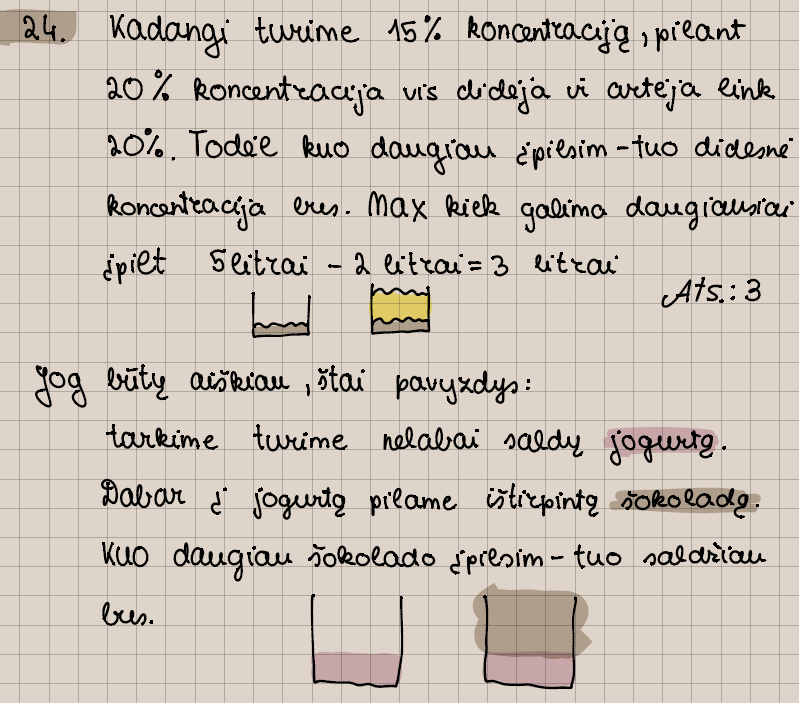 24. Kadangi turime 15% koncentraciją, pilant
20% koncentracija vis didėja vi artėja link
20%. Todėl kuo daugiau įpilsim - tuo didesnė
koncentracija bus. Max kiek galima daugiausiai
įpilt 5 litrai - 2 litrai = 3 litrai
Ats.: 3
Jog būtų aiškiau, štai pavyzdys:
tarkime turime nelabai saldų jogurtą.
Dabar į jogurtą pilame ištirpintą šokoladą.
Kuo daugiau šokolado įpilsim - tuo saldžiau
bus.